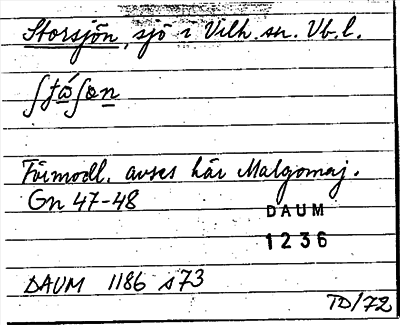 Storsjön, sjö i Vilh. sn. Vb. l.
Förmodl. avses här Malgomaj.
Gn 47-48
DAUM
1236
DAUM 1186 s73
TD/72